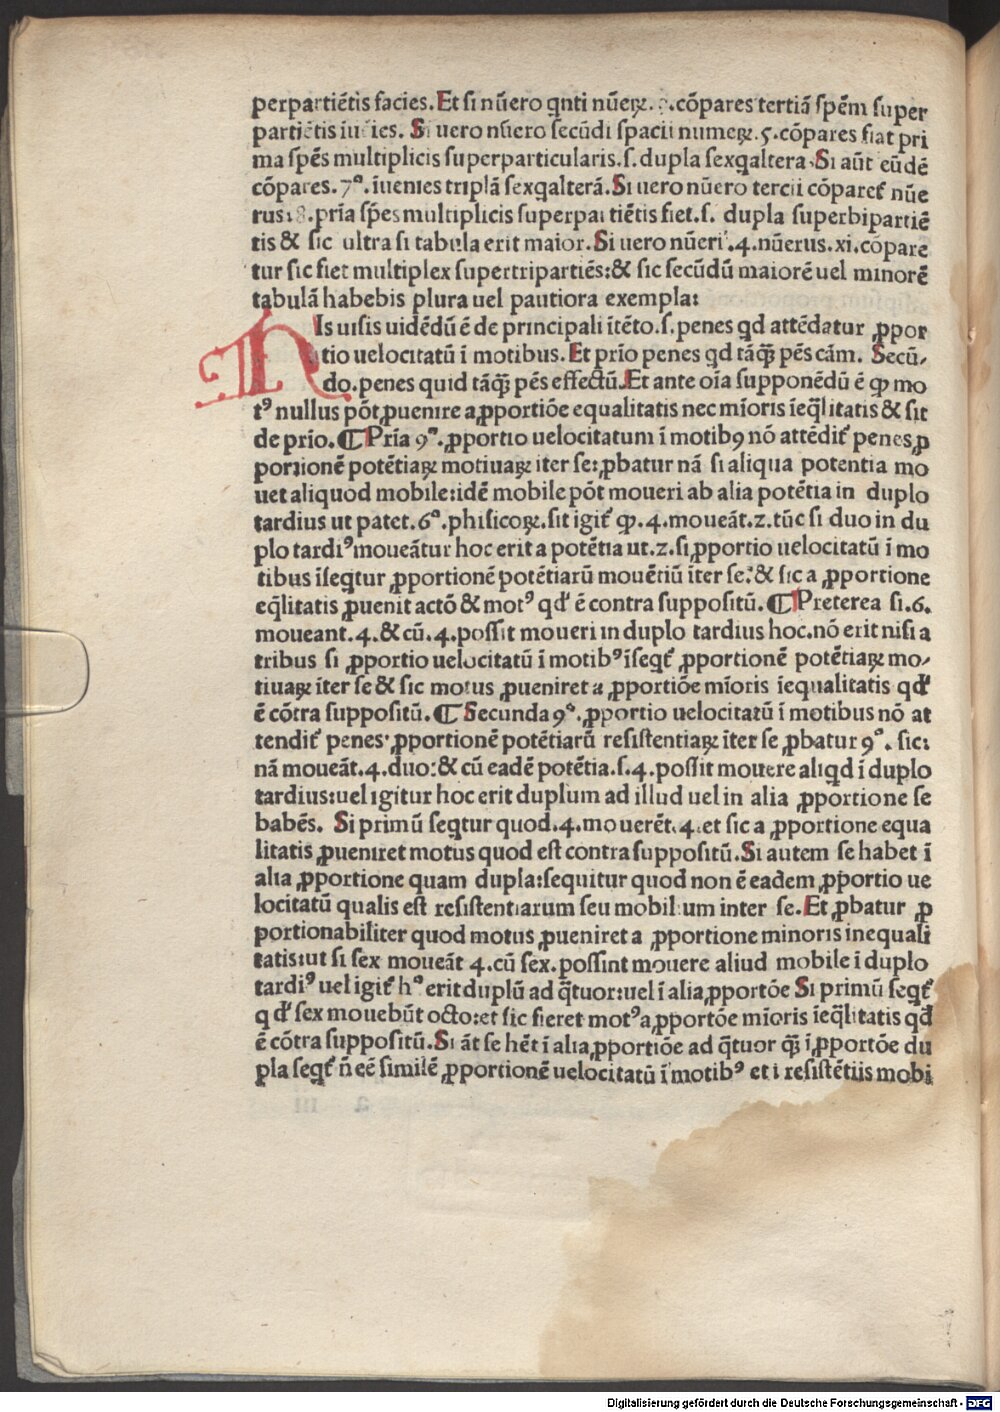 perpartiētis facies. Et si nūero qnti nūeꝝ. 9. cōpares tertiā spēm super
partiētis īuēies. Si uero nūero secūdi spacii numeꝝ. 5. cōpares fiat pri
ma spēs multiplicis superparticularis. s. dupla sexqaltera. Si aūt eūdē
cōpares. 7ᵃ. īuenies triplā sexqalterā. Si uero nūero tercii cōparet᷑ nūe
rus: 8. pria sp̄es multiplicis superpartiētis fiet. s. dupla superbipartiē
tis & sic ultra si tabula erit maior. Si uero nūeri. 4. nūerus. xi. cōpare
tur sic fiet multiplex supertripartiēs: & sic secūdū maiorē uel minorē
tabulā habebis plura uel pautiora exempla:
HIs uisis uidēdū ē de principali ītēto. s. penes qd attēdatur ꝓpor
tio uelocitatū ī motibus. Et prīo penes qd tāq̄ꝫ pēs cām. Secū-
do. penes quid tāq̄ꝫ pēs effectū. Et ante oīa supponēdū ē ꝙ mo
tꝰ nullus pōt ꝓuenire a ꝓportiōe equalitatis nec mīoris īeq̄litatis & sit
de prīo. ¶ Prīa 9ᵒ. ꝓportio uelocitatum ī motibꝯ nō attēdit᷑ penes ꝓ
portionē potētiaꝝ motiuaꝝ iter se: ꝓbatur nā si aliqua potentia mo
uet aliquod mobile: idē mobile pōt moueri ab alia potētia in duplo
tardius ut patet. 6ᵒ. phisicoꝝ. sit igit᷑ ꝙ. 4. moueāt. 2. tūc si duo in du
plo tardiꝰ moueātur hoc erit a potētia ut. 2. si ꝓportio uelocitatū ī mo
tibus īseqtur ꝓportionē potētiarū mouētiū īter se: & sic a ꝓportione
eq̄litatis ꝓuenit actō & motꝰ qđ ē contra suppositū. ¶ Preterea si. 6.
moueant. 4. & cū. 4. possit moueri in duplo tardius hoc. nō erit nisi a
tribus si ꝓportio uelocitatū ī motibꝰ īseqt᷑ ꝓportionē potētiaꝝ mo-
tiuaꝝ īter se & sic motus ꝓueniret a ꝓportiōe mīoris īequalitatis qđ
ē cōtra suppositū. ¶ Secunda 9ᵒ. ꝓportio uelocitatū ī motibus nō at
tendit᷑ penes ꝓportionē potētiarū resistentiaꝝ īter se ꝓbatur 9ᵒ. sic:
nā moueāt. 4. duo: & cū eadē potētia. s. 4. possit mouere aliqd ī duplo
tardius: uel igitur hoc erit duplum ad illud uel in alia ꝓportione se
habēs. Si primū seqtur quod. 4. mouerēt. 4. et sic a ꝓportione equa
litatis ꝓueniret motus quod est contra suppositū. Si autem se habet ī
alia ꝓportione quam dupla: sequitur quod non ē eadem ꝓportio ue
locitatū qualis est resistentiarum seu mobilium inter se. Et ꝓbatur ꝓ
portionabiliter quod motus ꝓueniret a ꝓportione minoris inequali
tatis: ut si sex moueāt 4. cū sex. possint mouere aliud mobile ī duplo
tardiꝰ uel igit᷑ hᵒ erit duplū ad q̄tuor: uel ī alia ꝓportōe Si primū seqt᷑
qđ sex mouebūt octo: et sic fieret motꝰ a ꝓportōe mīoris īeq̄litatis qđ
ē cōtra suppositū. Si āt se hēt ī alia ꝓportiōe ad q̄tuor q̄ꝫ ī ꝓportōe du
pla seqt᷑ n̄ eē similē ꝓportionē uelocitatū ī motibꝰ et ī resistētiis mobi
Digitalisierung gefördert durch die Deutsche Forschungsgemeinschaft - DFG